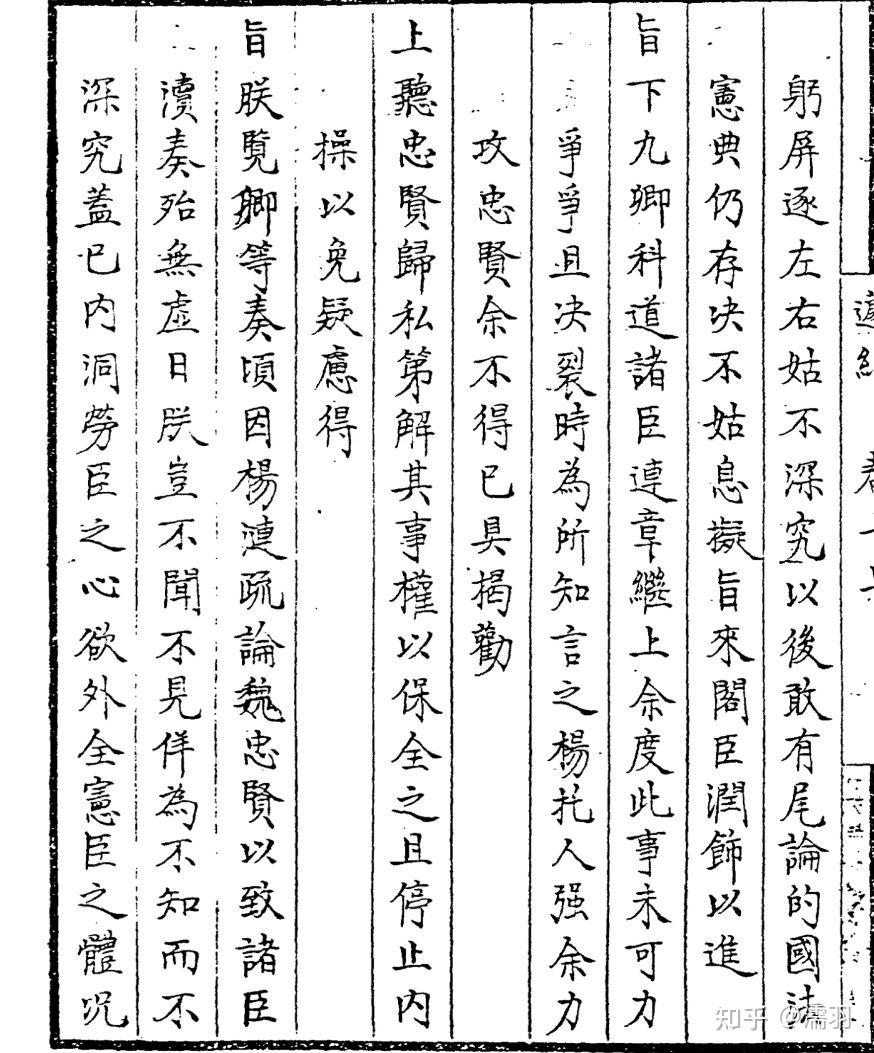 躬屏逐左右姑不深究以後敢有尾論的國法
憲典仍存决不姑息擬旨來閣臣潤飾以進
旨下九卿科道諸臣連章繼上余度此事未可力
爭爭且决裂時為所知言之楊托人强余力
攻忠賢余不得已具揭勸
上聽忠賢歸私第解其事權以保全之且停止内
操以免疑慮得
旨朕覧卿等奏頃因楊漣疏論魏忠賢以致諸臣
瀆奏殆無虚日朕豈不聞不見佯為不知而不
深究蓋已内洞勞臣之心欲外全憲臣之體况
知乎 @濡羽